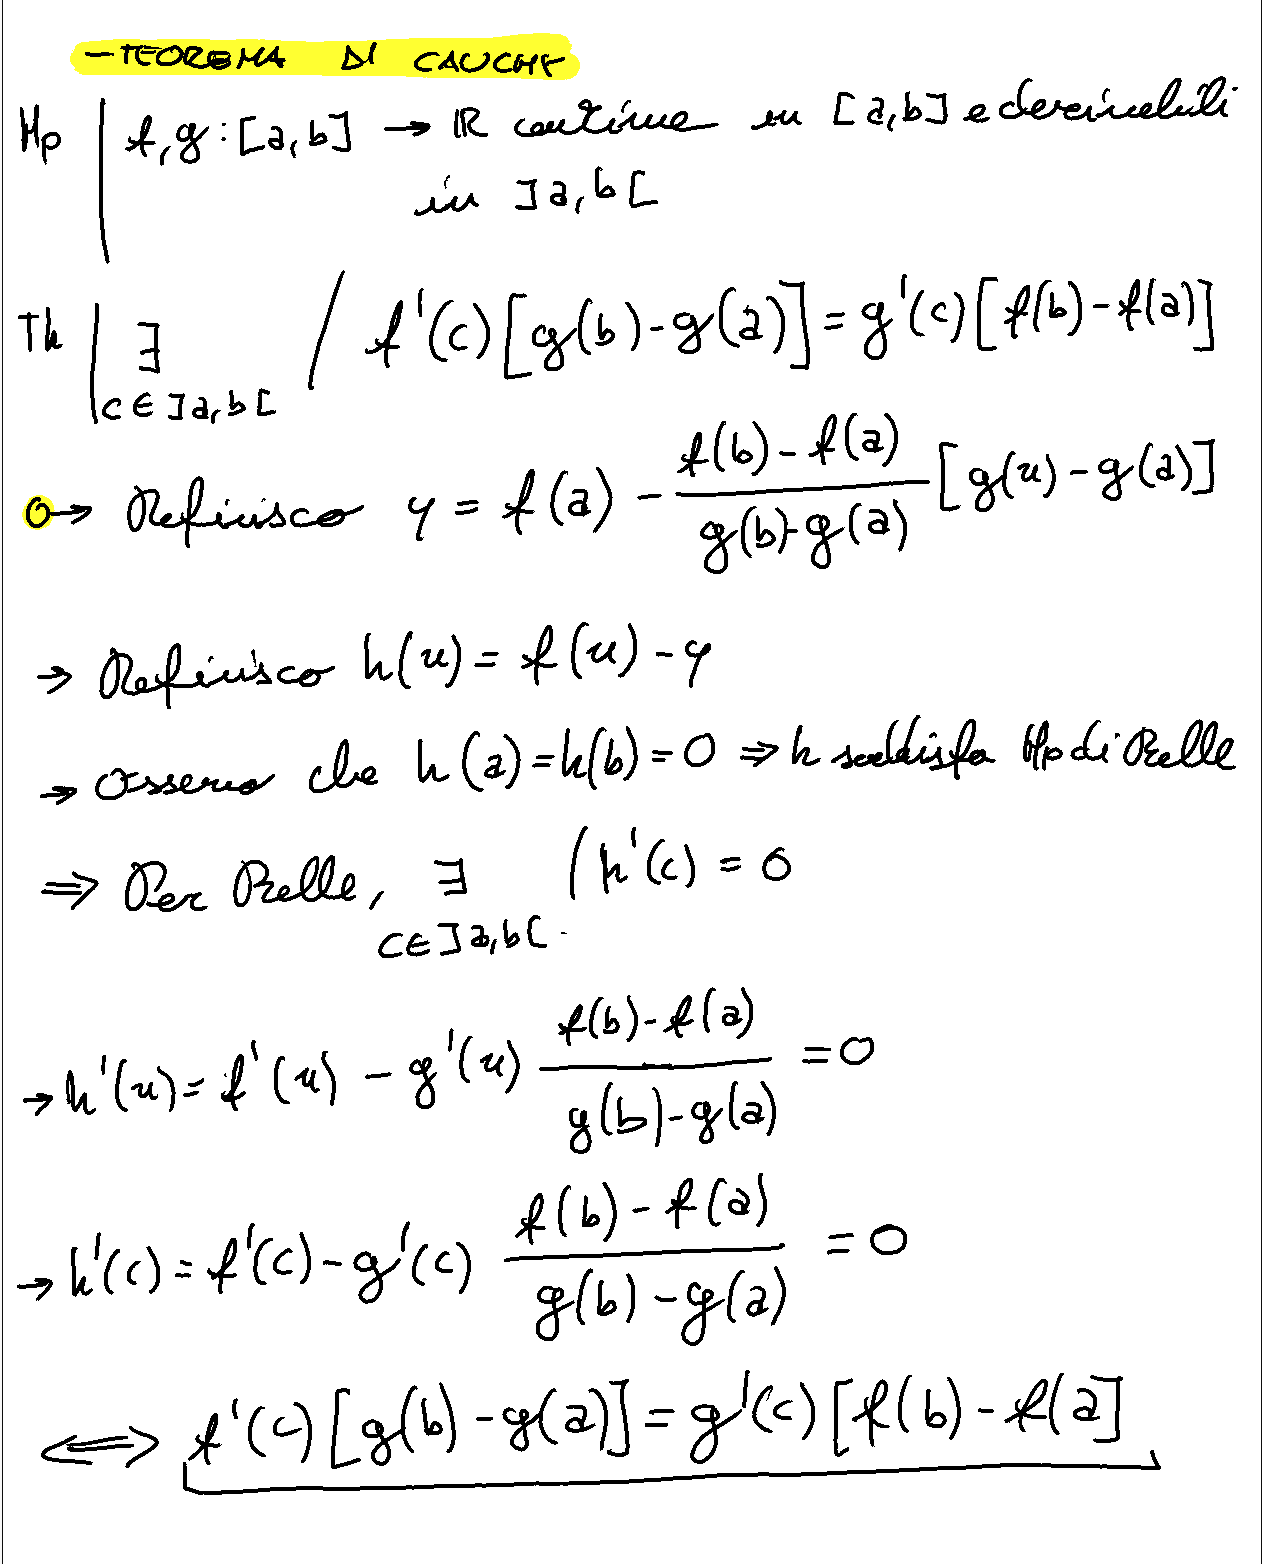 - TEOREMA DI CAUCHY
Hp | f, g : [a, b] → ℝ continue in [a, b] e derivabili
in ]a, b[
Th | ∃ / f'(c) [g(b) - g(a)] = g'(c) [f(b) - f(a)]
c ∈ ]a, b[
→ Definisco y = f(a) - \frac{f(b) - f(a)}{g(b) - g(a)} [g(x) - g(a)]
→ Definisco h(x) = f(x) - y
→ Osservo che h(a) = h(b) = 0 ⇒ h soddisfa Hp di Rolle
⇒ Per Rolle, ∃ / h'(c) = 0
c ∈ ]a, b[
→ h'(x) = f'(x) - g'(x) \frac{f(b) - f(a)}{g(b) - g(a)} = 0
→ h'(c) = f'(c) - g'(c) \frac{f(b) - f(a)}{g(b) - g(a)} = 0
⟺ f'(c) [g(b) - g(a)] = g'(c) [f(b) - f(a]